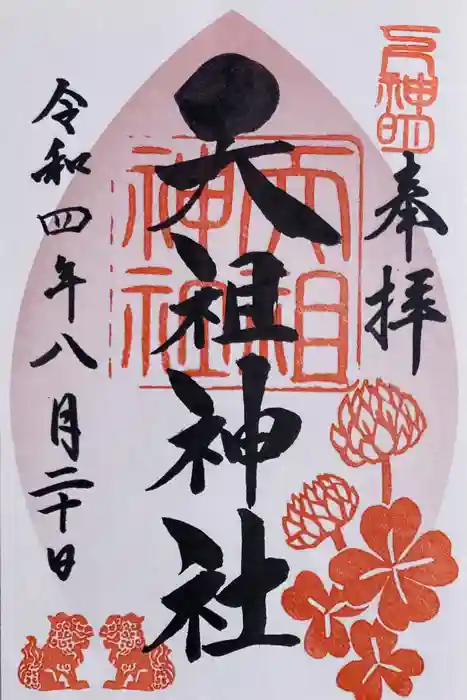 奉拝
天祖神社
天祖神社
令和四年八月二十日